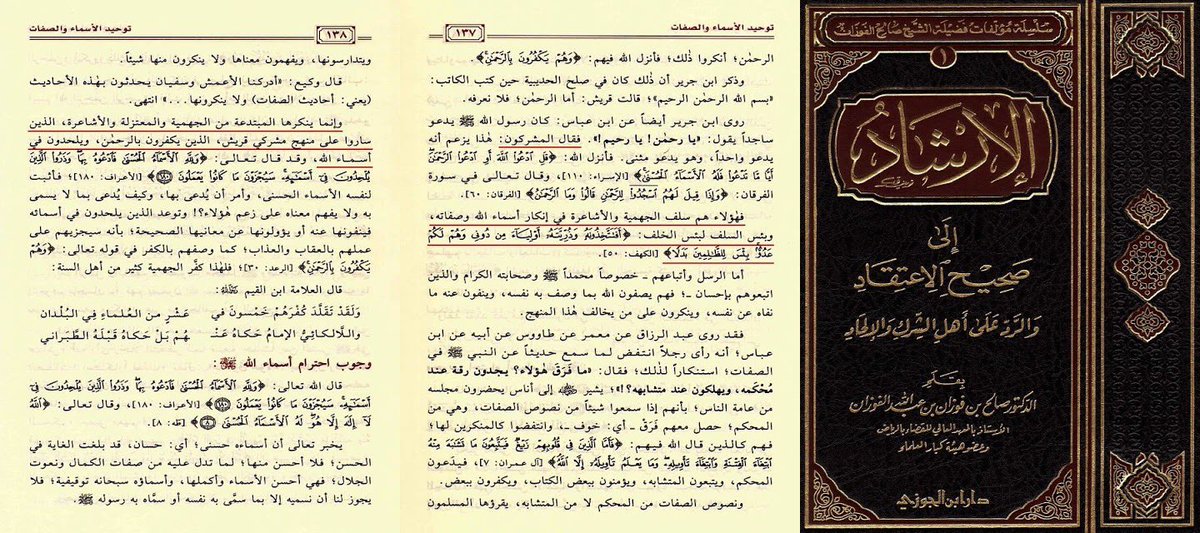 سلسلة مؤلفات فضيلة الشيخ صالح الفوزان
١
الإرشاد
إلى
صحيح الاعتقاد
والرد على أهل الشرك والإلحاد
بقلم
الدكتور صالح بن فوزان بن عبد الله الفوزان
الأستاذ بالمعهد العالي للقضاء بالرياض
وعضو هيئة كبار العلماء
دار ابن الجوزي
توحيد الأسماء والصفات
١٣٧
الرحمٰن؛ أنكروا ذٰلك؛ فأنزل الله فيهم: ﴿وَهُمْ يَكْفُرُونَ بِالرَّحْمَنِ﴾.
وذكر ابن جرير أن ذٰلك كان في صلح الحديبية حين كتب الكاتب:
«بسم الله الرحمٰن الرحيم»؛ قالت قريش: أما الرحمٰن؛ فلا نعرفه.
روى ابن جرير أيضاً عن ابن عباس: كان رسول الله ﷺ يدعو
ساجداً يقول: «يا رحمٰن! يا رحيم!». فقال المشركون: هٰذا يزعم أنه
يدعو واحداً، وهو يدعو مثنى. فأنزل الله: ﴿قُلِ ادْعُوا اللَّهَ أَوِ ادْعُوا الرَّحْمَنَ
أَيًّا مَّا تَدْعُوا فَلَهُ الْأَسْمَاءُ الْحُسْنَى﴾ [الإسراء: ١١٠]، وقال تعالى في سورة
الفرقان: ﴿وَإِذَا قِيلَ لَهُمُ اسْجُدُوا لِلرَّحْمَنِ قَالُوا وَمَا الرَّحْمَنُ﴾ [الفرقان: ٦٠].
فهٰؤلاء هم سلف الجهمية والأشاعرة في إنكار أسماء الله وصفاته،
وبئس السلف لبئس الخلف: ﴿أَفَتَتَّخِذُونَهُ وَذُرِّيَّتَهُ أَوْلِيَاءَ مِن دُونِي وَهُمْ لَكُمْ
عَدُوٌّ بِئْسَ لِلظَّالِمِينَ بَدَلًا﴾ [الكهف: ٥٠].
أما الرسل وأتباعهم ـ خصوصاً محمداً ﷺ وصحابته الكرام والذين
اتبعوهم بإحسان ـ؛ فهم يصفون الله بما وصف به نفسه، وينفون عنه ما
نفاه عن نفسه، وينكرون على من يخالف هٰذا المنهج.
فقد روى عبد الرزاق عن معمر عن طاووس عن أبيه عن ابن
عباس؛ أنه رأى رجلاً انتفض لما سمع حديثاً عن النبي ﷺ في
الصفات؛ استنكاراً لذٰلك؛ فقال: «ما فَرَقُ هٰؤلاء؟ يجدون رقة عند
مُحْكَمه، ويهلكون عند متشابهه؟!»؛ يشير ﵁ إلى أناس يحضرون مجلسه
من عامة الناس؛ بأنهم إذا سمعوا شيئاً من نصوص الصفات، وهي من
المحكم؛ حصل معهم فَرَقٌ ـ أي: خوف ـ، وانتفضوا كالمنكرين لها؛
فهم كالذين قال الله فيهم: ﴿فَأَمَّا الَّذِينَ فِي قُلُوبِهِمْ زَيْغٌ فَيَتَّبِعُونَ مَا تَشَابَهَ مِنْهُ
ابْتِغَاءَ الْفِتْنَةِ وَابْتِغَاءَ تَأْوِيلِهِ وَمَا يَعْلَمُ تَأْوِيلَهُ إِلَّا اللَّهُ﴾ [آل عمران: ٧]، فيدَعون
المحكم، ويتبعون المتشابه، ويؤمنون ببعض الكتاب، ويكفرون ببعض.
ونصوص الصفات من المحكم لا من المتشابه، يقرؤها المسلمون
توحيد الأسماء والصفات
١٣٨
ويتدارسونها، ويفهمون معناها ولا ينكرون منها شيئاً.
قال وكيع: «أدركنا الأعمش وسفيان يحدثون بهٰذه الأحاديث
(يعني: أحاديث الصفات) ولا ينكرونها...» انتهى.
وإنما ينكرها المبتدعة من الجهمية والمعتزلة والأشاعرة، الذين
ساروا على منهج مشركي قريش، الذين يكفرون بالرحمٰن، ويلحدون في
أسماء الله، وقد قال تعالى: ﴿وَلِلَّهِ الْأَسْمَاءُ الْحُسْنَى فَادْعُوهُ بِهَا وَذَرُوا الَّذِينَ
يُلْحِدُونَ فِي أَسْمَائِهِ سَيُجْزَوْنَ مَا كَانُوا يَعْمَلُونَ ۝١٨٠﴾ [الأعراف: ١٨٠]؛ فأثبت
لنفسه الأسماء الحسنى، وأمر أن يُدعى بها، وكيف يُدعى بما لا يسمى
به ولا يفهم معناه على زعم هٰؤلاء؟! وتوعد الذين يلحدون في أسمائه
فينفونها عنه أو يؤولونها عن معانيها الصحيحة؛ بأنه سيجزيهم على
عملهم بالعقاب والعذاب؛ كما وصفهم بالكفر في قوله تعالى: ﴿وَهُمْ
يَكْفُرُونَ بِالرَّحْمَنِ﴾ [الرعد: ٣٠]؛ فلهٰذا كفَّر الجهمية كثير من أهل السنة:
قال العلامة ابن القيم ﵀:
وَلَقَدْ تَقَلَّدَ كُفْرَهُمْ خَمْسُونَ فِي عَشْرٍ مِنَ العُلَمَاءِ فِي البُلْدَانِ
وَاللَّالَكَائِيُّ الإِمَامُ حَكَاهُ عَنْـ ـهُمْ بَلْ حَكَاهُ قَبْلَهُ الطَّبَرَانِي
وجوب احترام أسماء الله ﷻ:
قال الله تعالى: ﴿وَلِلَّهِ الْأَسْمَاءُ الْحُسْنَى فَادْعُوهُ بِهَا وَذَرُوا الَّذِينَ يُلْحِدُونَ فِي
أَسْمَائِهِ سَيُجْزَوْنَ مَا كَانُوا يَعْمَلُونَ ۝١٨٠﴾ [الأعراف: ١٨٠]، وقال تعالى: ﴿اللَّهُ
لَا إِلَهَ إِلَّا هُوَ لَهُ الْأَسْمَاءُ الْحُسْنَى ۝٨﴾ [طه: ٨].
يخبر تعالى أن أسماءه حسنى؛ أي: حسان، قد بلغت الغاية في
الحسن؛ فلا أحسن منها؛ لما تدل عليه من صفات الكمال ونعوت
الجلال؛ فهي أحسن الأسماء وأكملها، وأسماؤه سبحانه توقيفية؛ فلا
يجوز لنا أن نسميه إلا بما سمَّى به نفسه أو سمَّاه به رسوله ﷺ.